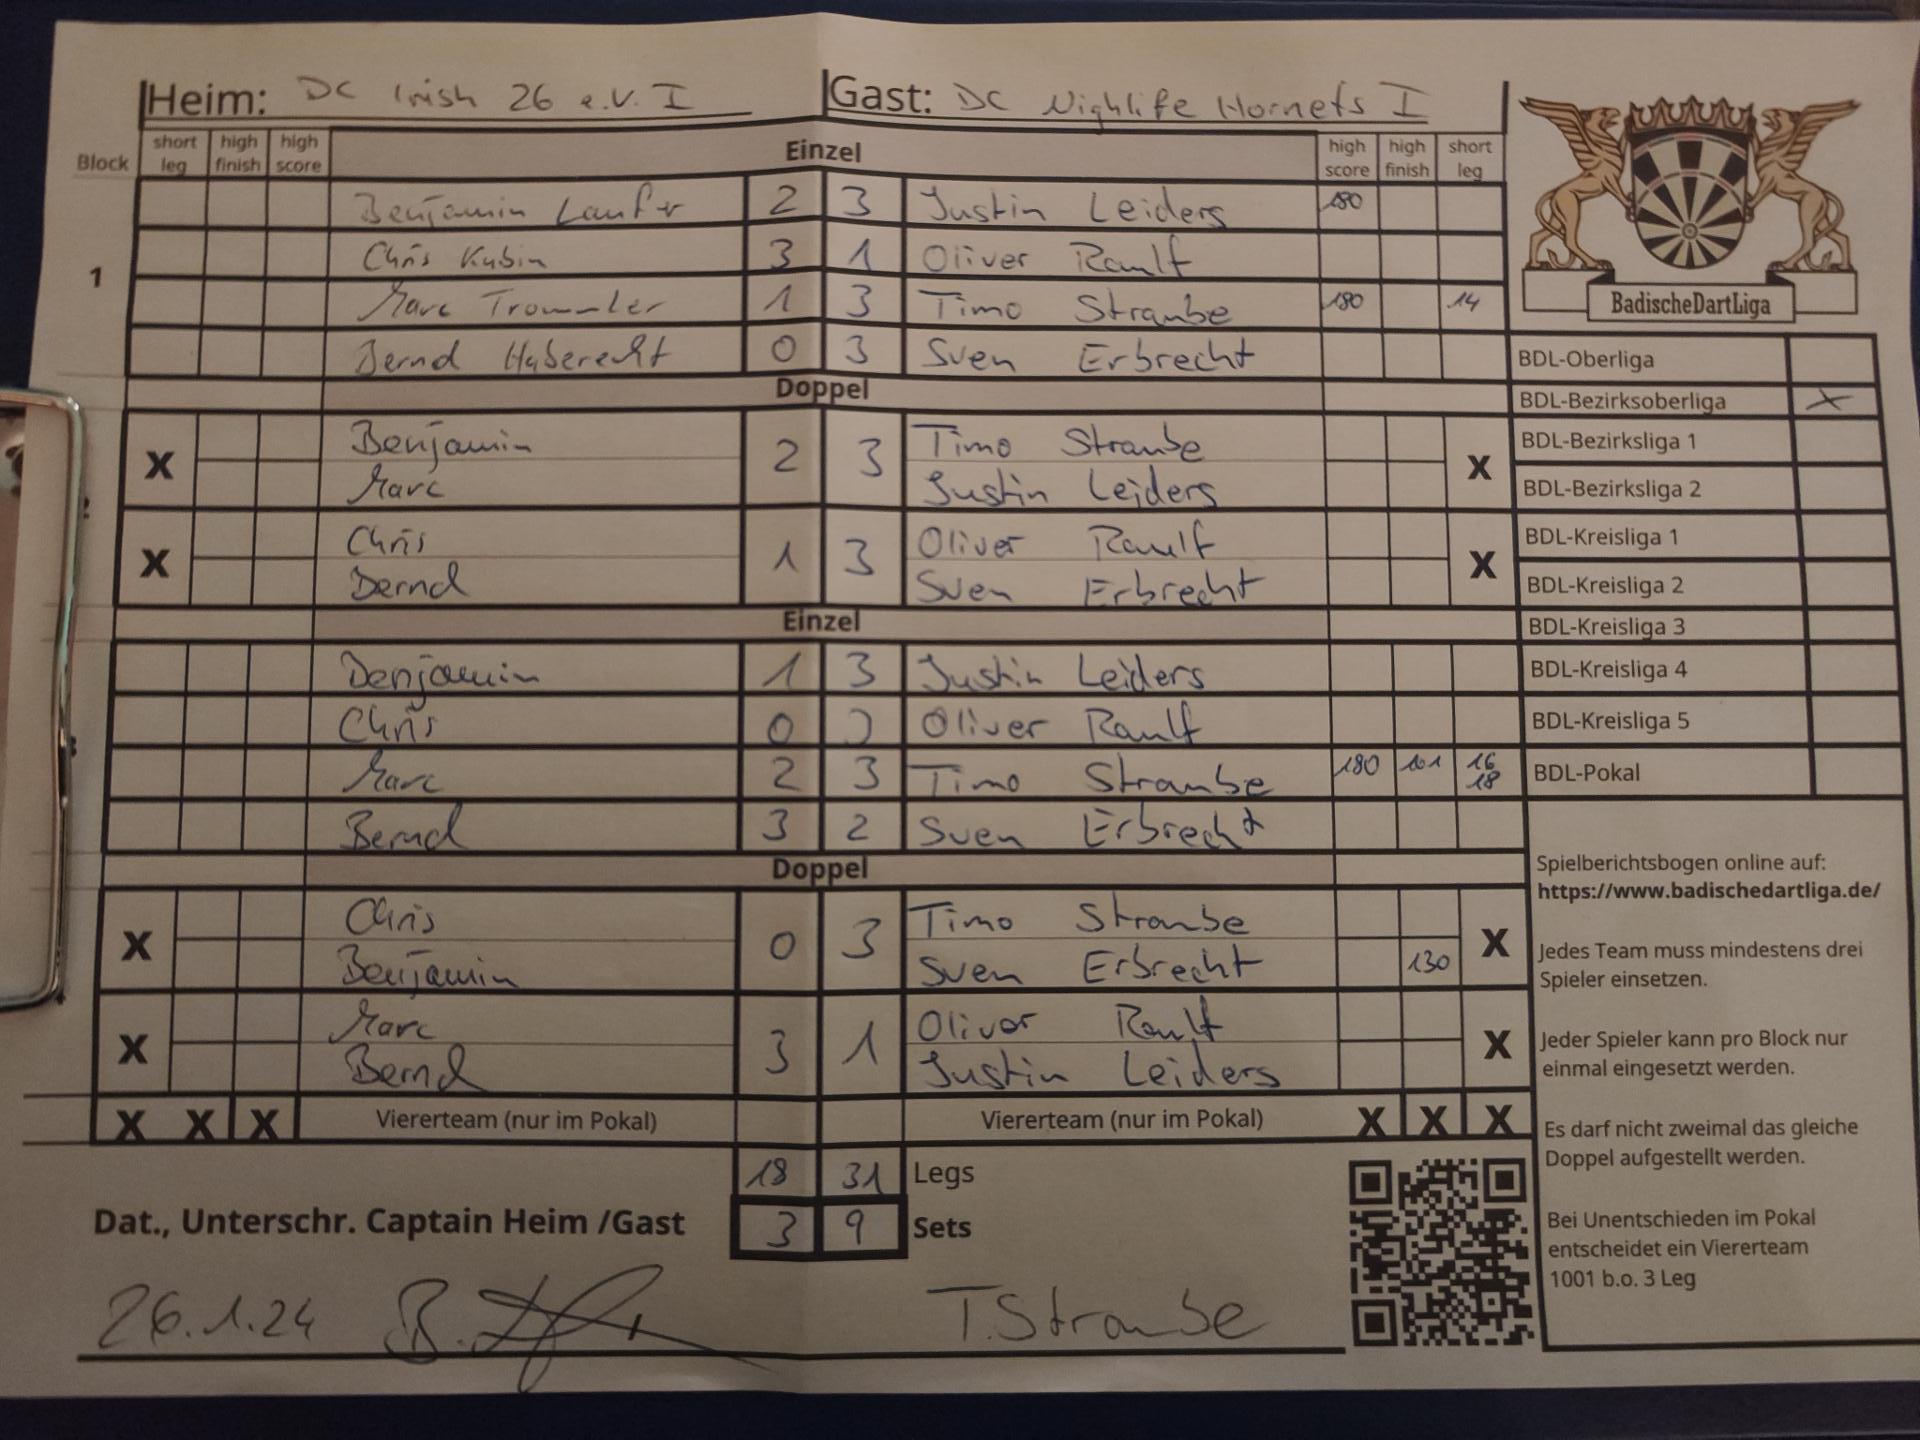 Heim: DC Irish 26 e.V. I Gast: DC Nighlife Hornets I
Block short leg high finish high score Einzel high score high finish short leg
Benjamin Laufer 2 3 Justin Leiders 180
Chris Kubin 3 1 Oliver Raulf
1
Marc Trommler 1 3 Timo Straube 180 14
Bernd Haberecht 0 3 Sven Erbrecht
Doppel
X Benjamin Marc 2 3 Timo Straube Justin Leiders X
X Chris Bernd 1 3 Oliver Raulf Sven Erbrecht X
Einzel
Benjamin 1 3 Justin Leiders
Chris 0 3 Oliver Raulf
Marc 2 3 Timo Straube 180 101 16 18
Bernd 3 2 Sven Erbrecht
Doppel
X Chris Benjamin 0 3 Timo Straube Sven Erbrecht 130 X
X Marc Bernd 3 1 Oliver Raulf Justin Leiders X
X X X Viererteam (nur im Pokal) Viererteam (nur im Pokal) X X X
18 31 Legs
Dat., Unterschr. Captain Heim /Gast 3 9 Sets
26.1.24 T. Straube
BadischeDartLiga
BDL-Oberliga
BDL-Bezirksoberliga X
BDL-Bezirksliga 1
BDL-Bezirksliga 2
BDL-Kreisliga 1
BDL-Kreisliga 2
BDL-Kreisliga 3
BDL-Kreisliga 4
BDL-Kreisliga 5
BDL-Pokal
Spielberichtsbogen online auf:
https://www.badischedartliga.de/
Jedes Team muss mindestens drei
Spieler einsetzen.
Jeder Spieler kann pro Block nur
einmal eingesetzt werden.
Es darf nicht zweimal das gleiche
Doppel aufgestellt werden.
Bei Unentschieden im Pokal
entscheidet ein Viererteam
1001 b.o. 3 Leg